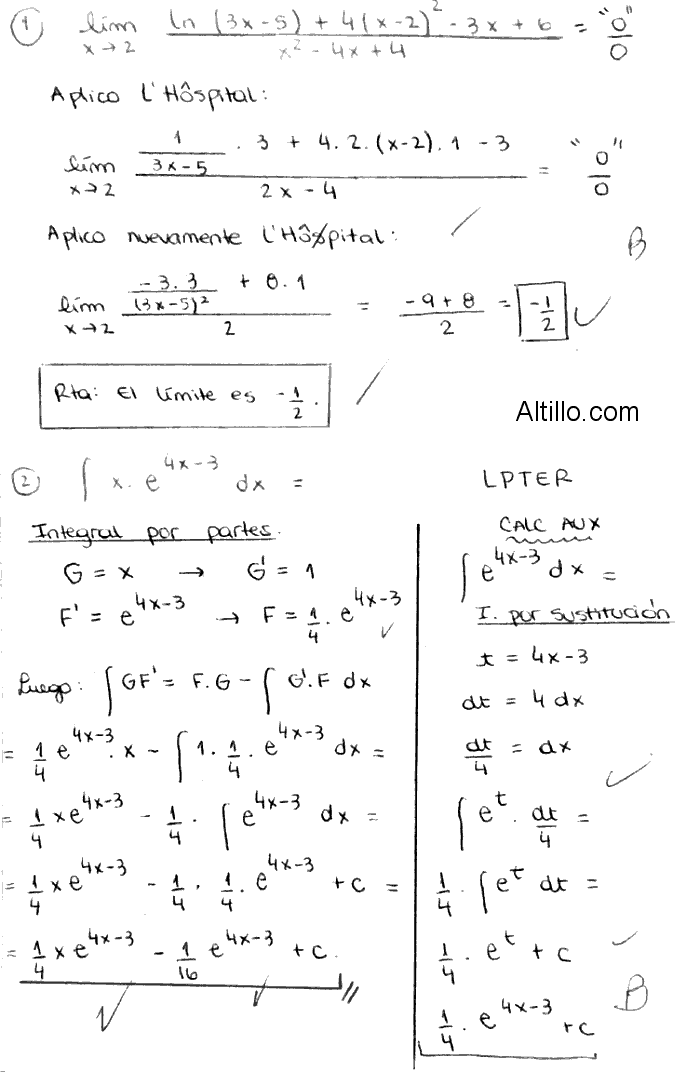 ① lím x→2 (ln (3x-5) + 4(x-2)² - 3x + 6) / (x² - 4x + 4) = "0"/0
Aplico L'Hôspital:
lím x→2 (1/(3x-5) . 3 + 4.2.(x-2).1 - 3) / (2x - 4) = "0"/0
Aplico nuevamente L'Hôspital:
B
lím x→2 (-3.3/(3x-5)² + 8.1) / 2 = (-9+8)/2 = -1/2
Rta: El límite es -1/2.
Altillo.com
② ∫ x. e^(4x-3) dx =
Integral por partes.
G = x → G' = 1
F' = e^(4x-3) → F = 1/4 . e^(4x-3)
Luego: ∫ GF' = F.G - ∫ G'.F dx
= 1/4 e^(4x-3) . x - ∫ 1. 1/4 . e^(4x-3) dx =
= 1/4 x e^(4x-3) - 1/4 . ∫ e^(4x-3) dx =
= 1/4 x e^(4x-3) - 1/4 . 1/4 . e^(4x-3) + c =
= 1/4 x e^(4x-3) - 1/16 e^(4x-3) + c.
LPTER
CALC AUX
∫ e^(4x-3) dx =
I. por sustitución
t = 4x-3
dt = 4 dx
dt/4 = dx
∫ e^t . dt/4 =
1/4 . ∫ e^t dt =
1/4 . e^t + c
B
1/4 . e^(4x-3) + c